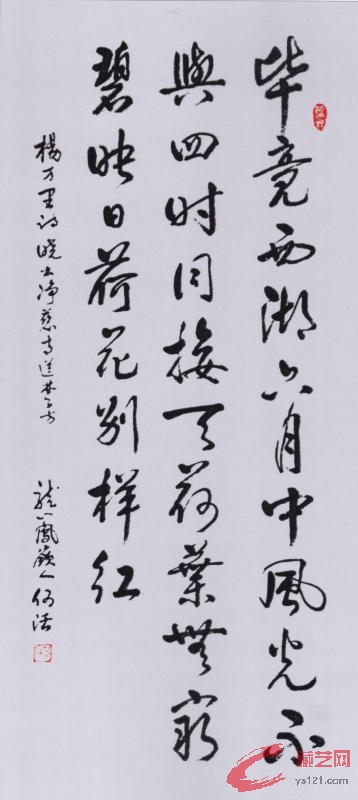 毕竟西湖六月中風光不
與四时同接天荷葉無穷
碧映日荷花别样红
楊万里诗晓出净慈寺送林子方
龍鳳嶺人何
艺网
ys121.com